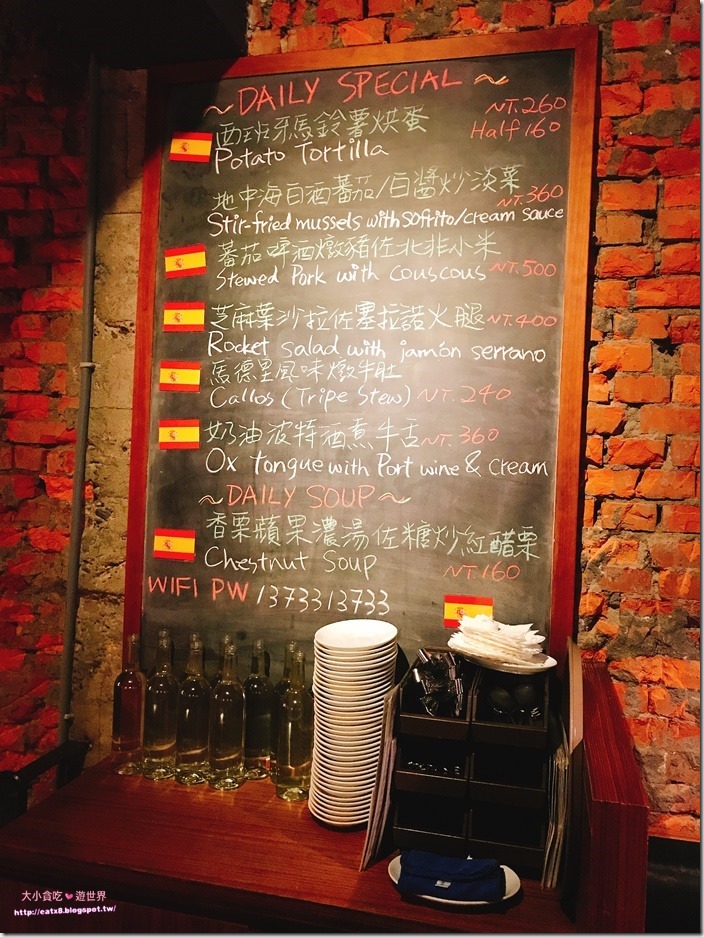 ～DAILY SPECIAL～
西班牙馬鈴薯烘蛋 NT.260
Potato Tortilla Half 160
地中海白酒蕃茄/白醬炒淡菜 NT.360
Stir-fried mussels with Sofrito/cream sauce
蕃茄啤酒燉豬佐北非小米
Stewed Pork with Couscous NT.500
芝麻葉沙拉佐塞拉諾火腿 NT.400
Rocket salad with jamón serrano
馬德里風味燉牛肚
Callos (Tripe Stew) NT.240
奶油波特酒煮牛舌 NT.360
Ox tongue with Port wine & Cream
～DAILY SOUP～
香栗蘋果濃湯佐糖炒紅醋栗
Chestnut Soup NT.160
WIFI PW 1373313733
大小貪吃❤遊世界
http://eatx8.blogspot.tw/